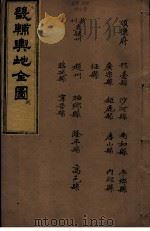 順德府
邢臺縣 沙河縣 南和縣 平鄉縣
廣宗縣 鉅鹿縣 唐山縣 內邱縣
任縣
趙州
柏鄉縣 隆平縣 高邑縣
臨城縣 寧晉縣
畿輔輿地全圖